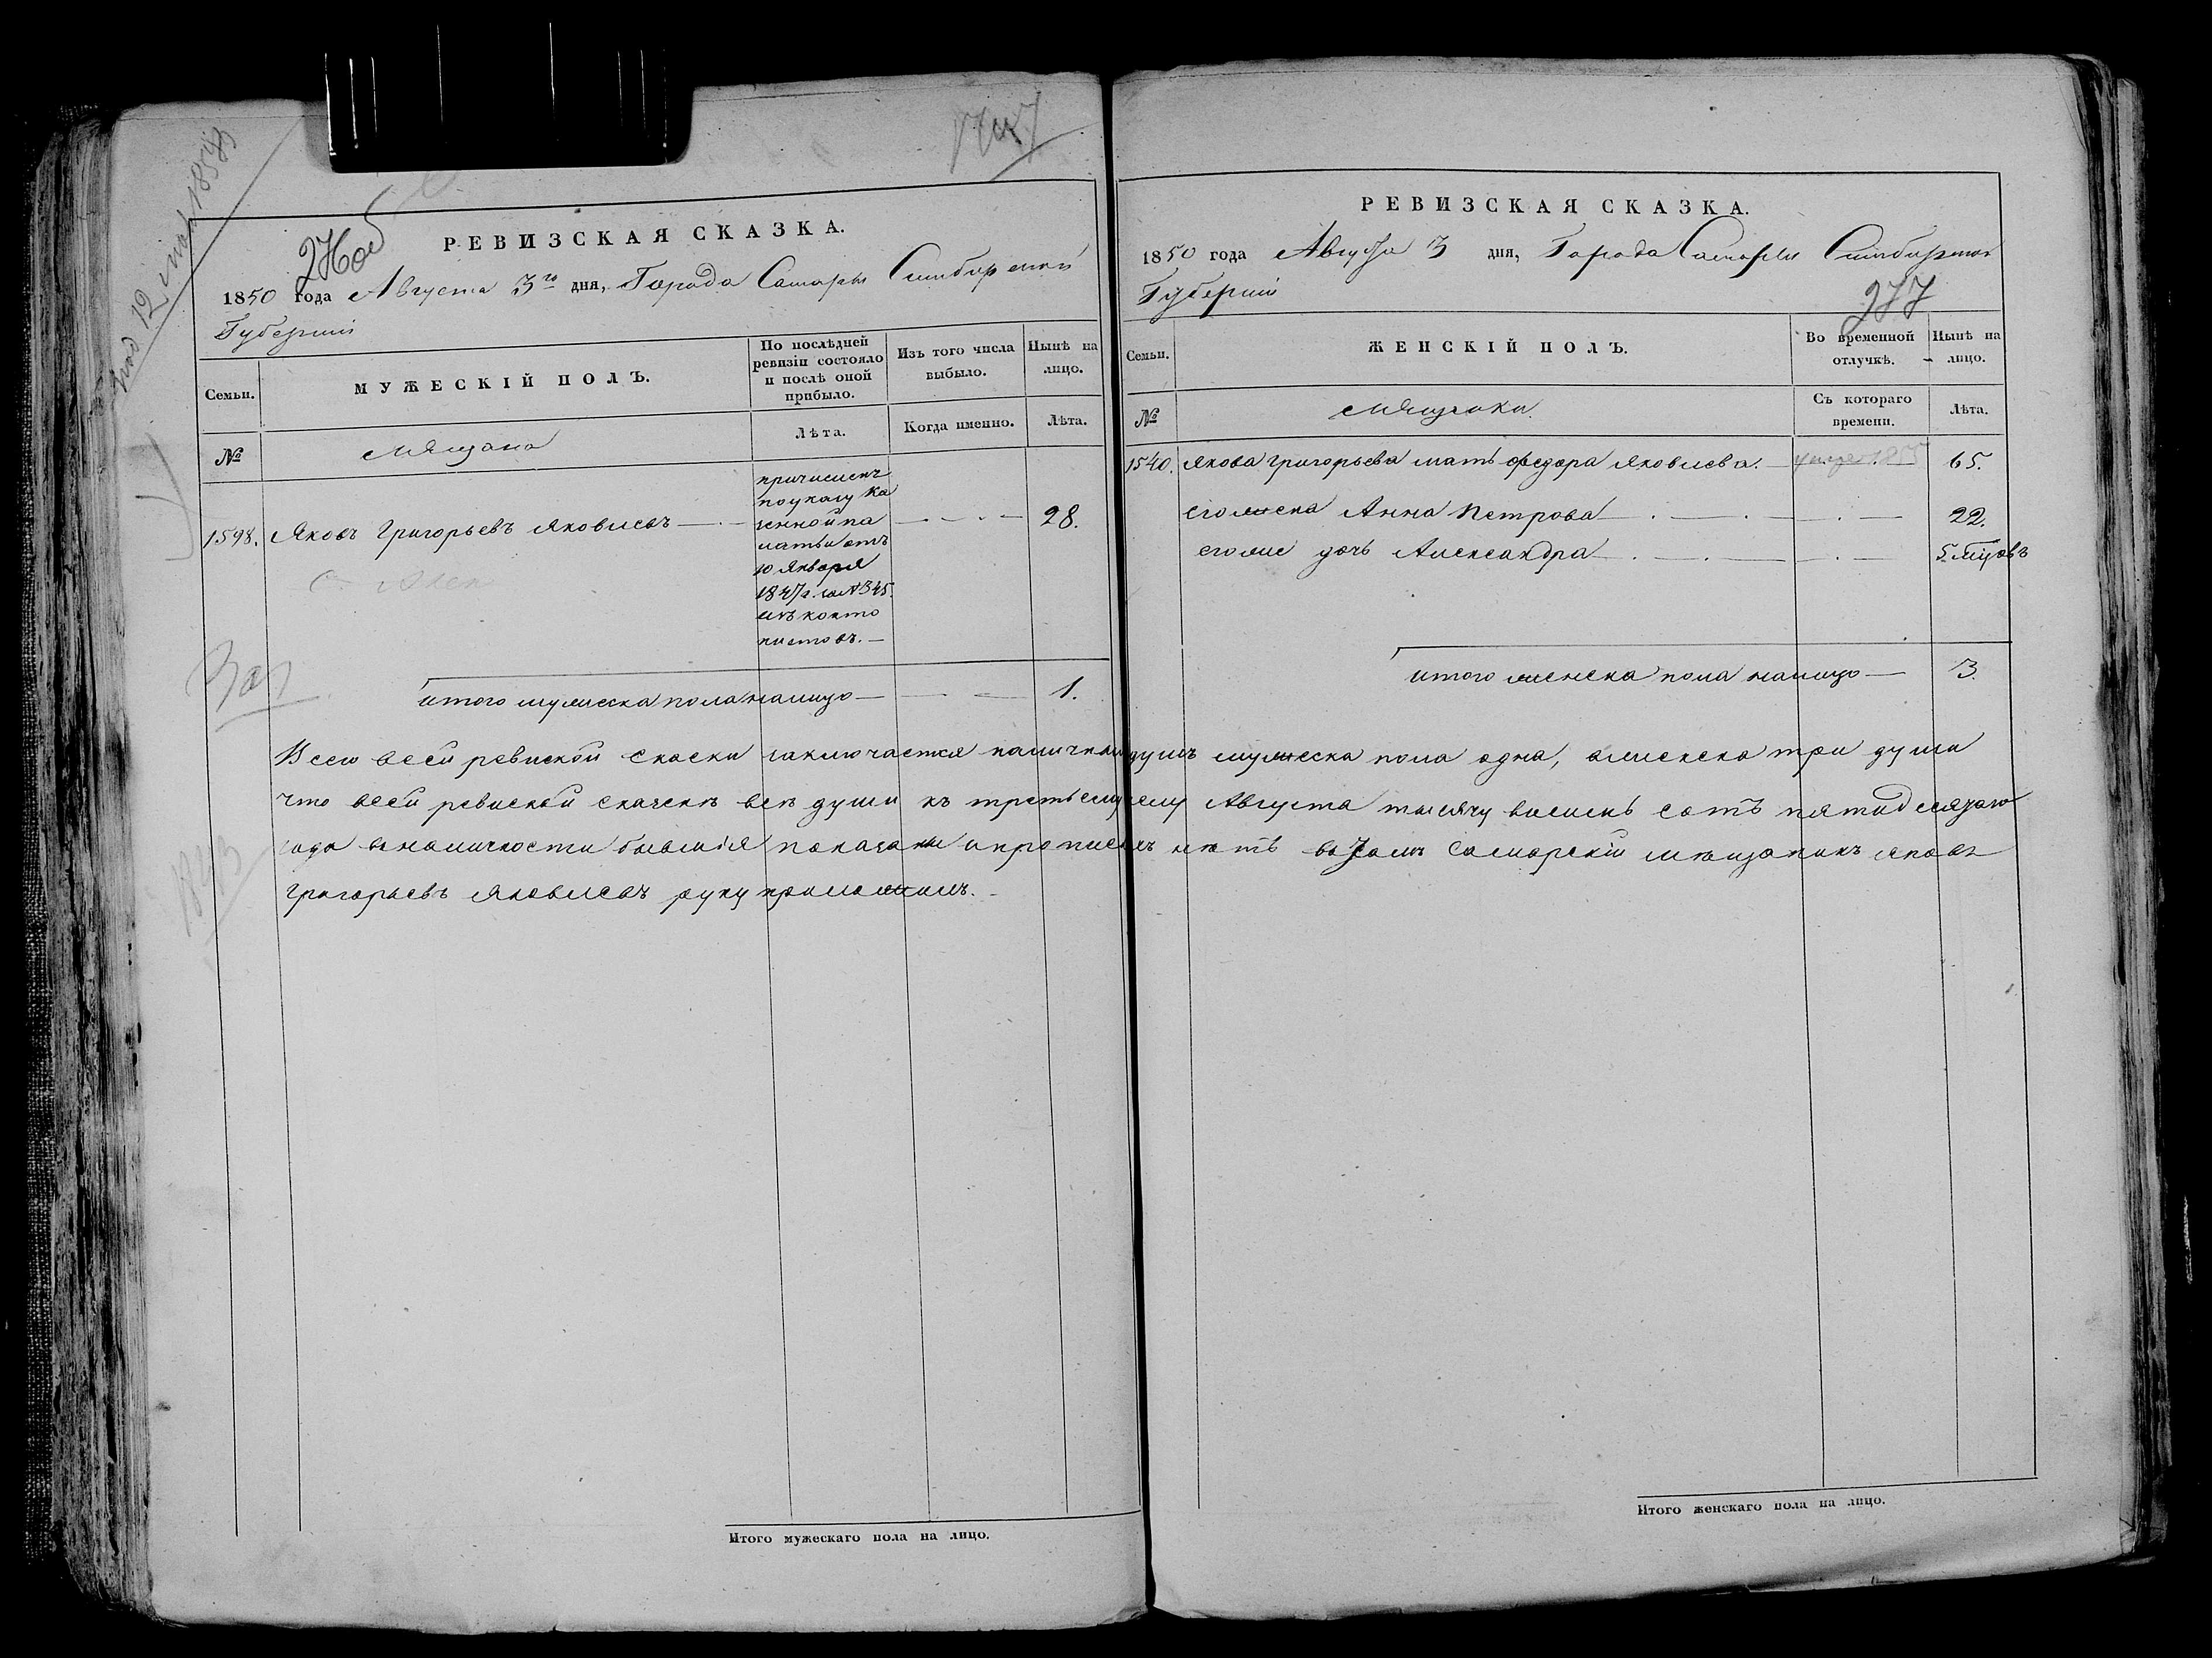 276 об
РЕВИЗСКАЯ СКАЗКА.
1850 года Августа 3го дня, Города Самары Симбирской
Губернии
Семьи.
МУЖЕСКІЙ ПОЛЪ.
По послѣдней ревизіи состояло и послѣ оной прибыло.
Изъ того числа выбыло.
Нынѣ на лицо.
№
Мящана
Лѣта.
Когда именно.
Лѣта.
1598. Яковъ Григорьевъ Яковлевъ
причисленъ
по указу Ка
зенной па
латы отъ
10 Января
1847 г. за № 345.
изъ канто
нистовъ.
28.
итого мужеска пола налицо 1.
РЕВИЗСКАЯ СКАЗКА.
1850 года Августа 3 дня, Города Самары Симбирской
Губерніи
277
Семьи.
ЖЕНСКІЙ ПОЛЪ.
Во временной отлучкѣ.
Нынѣ на лицо.
№
Мящанки
Съ котораго времени.
Лѣта.
1540. Якова Григорьева мать Федора Яковлева. 65.
его жена Анна Петрова 22.
его же дочь Александра 5 мцовъ
итого женска пола налицо 3.
Всего всей ревиской скаски заключается наличных душъ мужеска пола одна, а женска три души
что всей ревиской скаскѣ всѣ души къ третьему числу Августа тысячу восемь сотъ пятидесятаго
года в наличности бывшія показаны и прописныхъ нѣтъ в томъ Самарскій мѣщанинъ Яковъ
Григорьевъ Яковлевъ руку приложилъ.
Итого мужескаго пола на лицо.
Итого женскаго пола на лицо.